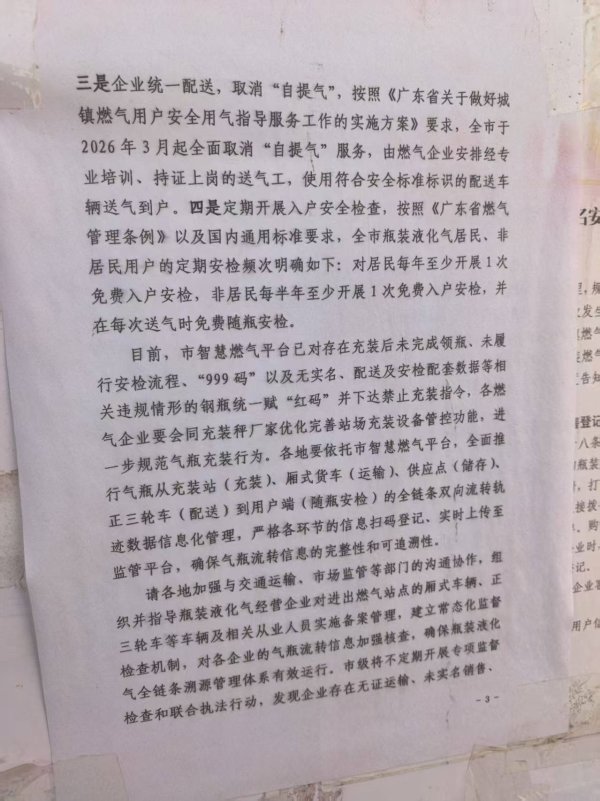 三是企业统一配送，取消“自提气”，按照《广东省关于做好城
镇燃气用户安全用气指导服务工作的实施方案》要求，全市于
2026 年 3 月起全面取消“自提气”服务，由燃气企业安排经专
业培训、持证上岗的送气工，使用符合安全标准标识的配送车
辆送气到户。四是定期开展入户安全检查，按照《广东省燃气
管理条例》以及国内通用标准要求，全市瓶装液化气居民、非
居民用户的定期安检频次明确如下：对居民每年至少开展 1 次
免费入户安检，非居民每半年至少开展 1 次免费入户安检，并
在每次送气时免费随瓶安检。
目前，市智慧燃气平台已对存在充装后未完成领瓶、未履
行安检流程、“999 码”以及无实名、配送及安检配套数据等相
关违规情形的钢瓶统一赋“红码”并下达禁止充装指令，各燃
气企业要会同充装秤厂家优化完善站场充装设备管控功能，进
一步规范气瓶充装行为。各地要依托市智慧燃气平台，全面推
行气瓶从充装站（充装）、厢式货车（运输）、供应点（储存）、
正三轮车（配送）到用户端（随瓶安检）的全链条双向流转轨
迹数据信息化管理，严格各环节的信息扫码登记、实时上传至
监管平台，确保气瓶流转信息的完整性和可追溯性。
请各地加强与交通运输、市场监管等部门的沟通协作，组
织并指导瓶装液化气经营企业对进出燃气站点的厢式车辆、正
三轮车等车辆及相关从业人员实施备案管理，建立常态化监督
检查机制，对各企业的气瓶流转信息加强核查，确保瓶装液化
气全链条溯源管理体系有效运行。市级将不定期开展专项监督
检查和联合执法行动，发现企业存在无证运输、未实名销售、
- 3 -